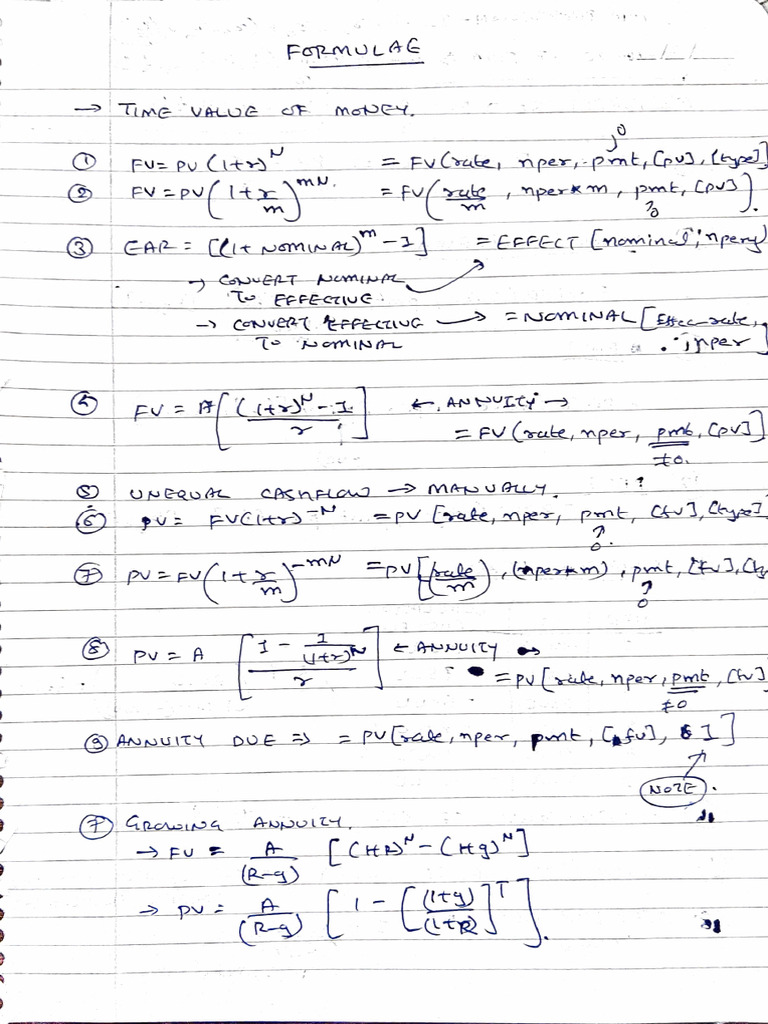 FORMULAE
→ TIME VALUE OF MONEY.
0
① FV = PV (1+r)^N = FV(rate, nper, pmt, [pv], [type]
② FV = PV (1+r/m)^mN = FV(rate/m, nper*m, pmt, [pv]).
0
③ EAR = [(1+NOMINAL)^m - 1] = EFFECT [nominal, npery)
→ CONVERT NOMINAL
TO EFFECTIVE.
→ CONVERT EFFECTING → = NOMINAL [Effec-rate,
TO NOMINAL nper]
FV = A[((1+r)^N - 1)/r] ← ANNUITY →
= FV(rate, nper, pmt, [pv]]
≠0.
⑤ UNEQUAL CASHFLOW → MANUALLY.
⑥ PV = FV(1+r)^-N = PV [rate, nper, pmt, [fv], [type]
0.
⑦ PV = FV(1+r/m)^-mN = PV[(rate/m), (nper*m), pmt, [fv], [ty
0
⑧ PV = A [(1 - 1/(1+r)^N)/r] ← ANNUITY →
= PV[rate, nper, pmt, [fv]
≠0
⑨ ANNUITY DUE ⇒ = PV[rate, nper, pmt, [fv], 1]
NOTE.
⑦ GROWING ANNUITY.
→ FV = A/(R-g) [(1+R)^N - (1+g)^N]
→ PV = A/(R-g) [1 - [(1+g)/(1+R)]^T].